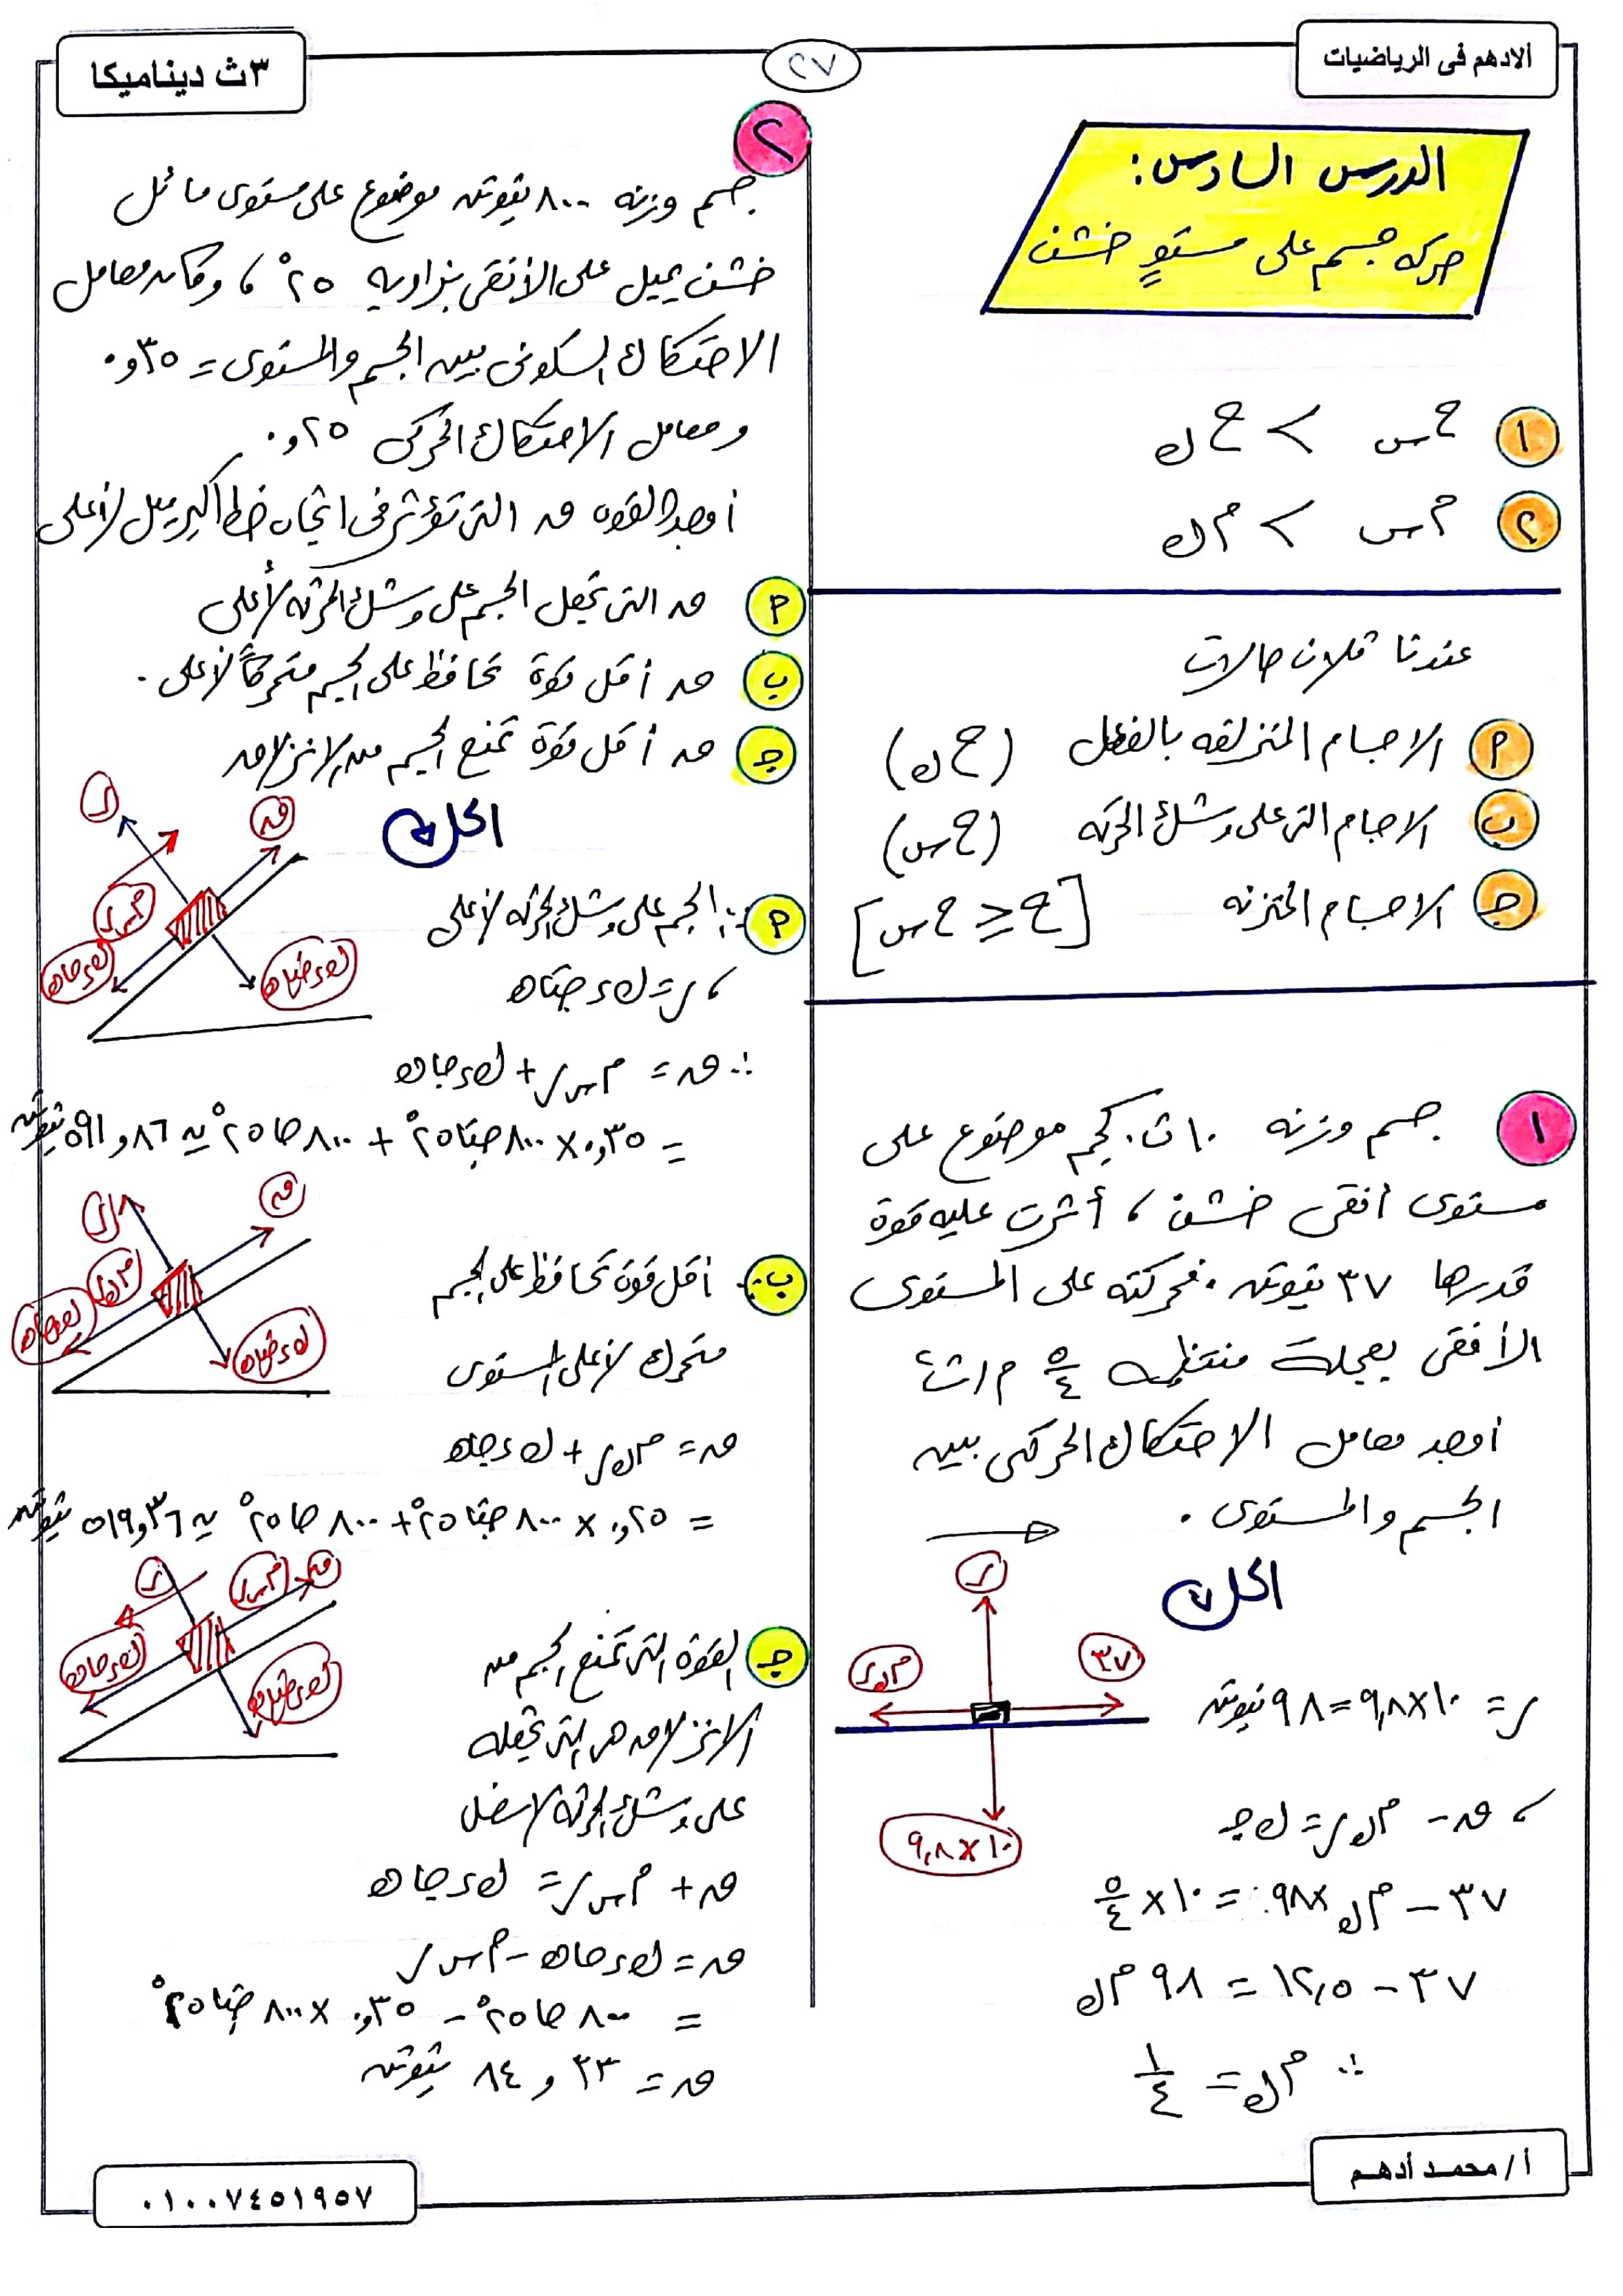 الادهم فى الرياضيات
٢٧
٣ث ديناميكا
الدرس السادس:
حركة جسم على مستوٍ خشن
١ ح س > ح ك
٢ م س > م ك
عندنا ثلاث حالات
أ الاجسام المنزلقه بالفعل (ح ك)
ب الاجسام التى على وشك الحركه (ح س)
جـ الاجسام المتزنه [ح ≤ ح س]
١ جسم وزنه ١٠ ث.كجم موضوع على
مستوى أفقى خشن ، أثرت عليه قوة
قدرها ٣٧ نيوتن . فحركته على المستوى
الأفقى بعجلة منتظمه ٥/٤ م/ث٢
أوجد معامل الاحتكاك الحركى بين
الجسم والمستوى .
الحل
ر
م ك ر
٣٧
٩,٨×١٠
ر = ١٠×٩,٨ = ٩٨ نيوتن
، ق - م ك ر = ك جـ
٣٧ - م ك × ٩٨ = ١٠ × ٥/٤
٣٧ - ١٢,٥ = ٩٨ م ك
∴ م ك = ١/٤
٢
جسم وزنه ٨٠٠ نيوتن موضوع على مستوى مائل
خشن يميل على الأفقى بزاويه ٢٥° ، وكان معامل
الاحتكاك السكونى بين الجسم والمستوى = ٠,٣٥
ومعامل الاحتكاك الحركى ٠,٢٥
أوجد القوه ق التى تؤثر فى اتجاه خط أكبر ميل لأعلى
أ ق التى تجعل الجسم على وشك الحركه لأعلى
ب ق أقل قوة تحافظ على الجسم متحركاً لأعلى .
جـ ق أقل قوة تمنع الجسم من الانزلاق
الحل
ر
ق
م س ر
ك ء جا هـ
ك ء جتا هـ
أ ∵ الجسم على وشك الحركه لأعلى
، ر = ك ء جتا هـ
∴ ق = م س ر + ك ء جا هـ
= ٠,٣٥ × ٨٠٠ جتا ٢٥° + ٨٠٠ جا ٢٥° ≃ ٥٩١,٨٦ نيوتن
ر
ق
م ك ر
ك ء جا هـ
ك ء جتا هـ
ب ∵ أقل قوة تحافظ على الجسم
متحرك لأعلى المستوى
ق = م ك ر + ك ء جا هـ
= ٠,٢٥ × ٨٠٠ جتا ٢٥° + ٨٠٠ جا ٢٥° ≃ ٥١٩,٣٦ نيوتن
ر
م س ر
ق
ك ء جا هـ
ك ء جتا هـ
جـ القوة التى تمنع الجسم من
الانزلاق هى التى تجعله
على وشك الحركه لأسفل
ق + م س ر = ك ء جا هـ
ق = ك ء جا هـ - م س ر
= ٨٠٠ جا ٢٥° - ٠,٣٥ × ٨٠٠ جتا ٢٥°
ق = ٨٤,٣٣ نيوتن
أ/محمد أدهم
٠١٠٠٧٤٥١٩٥٧